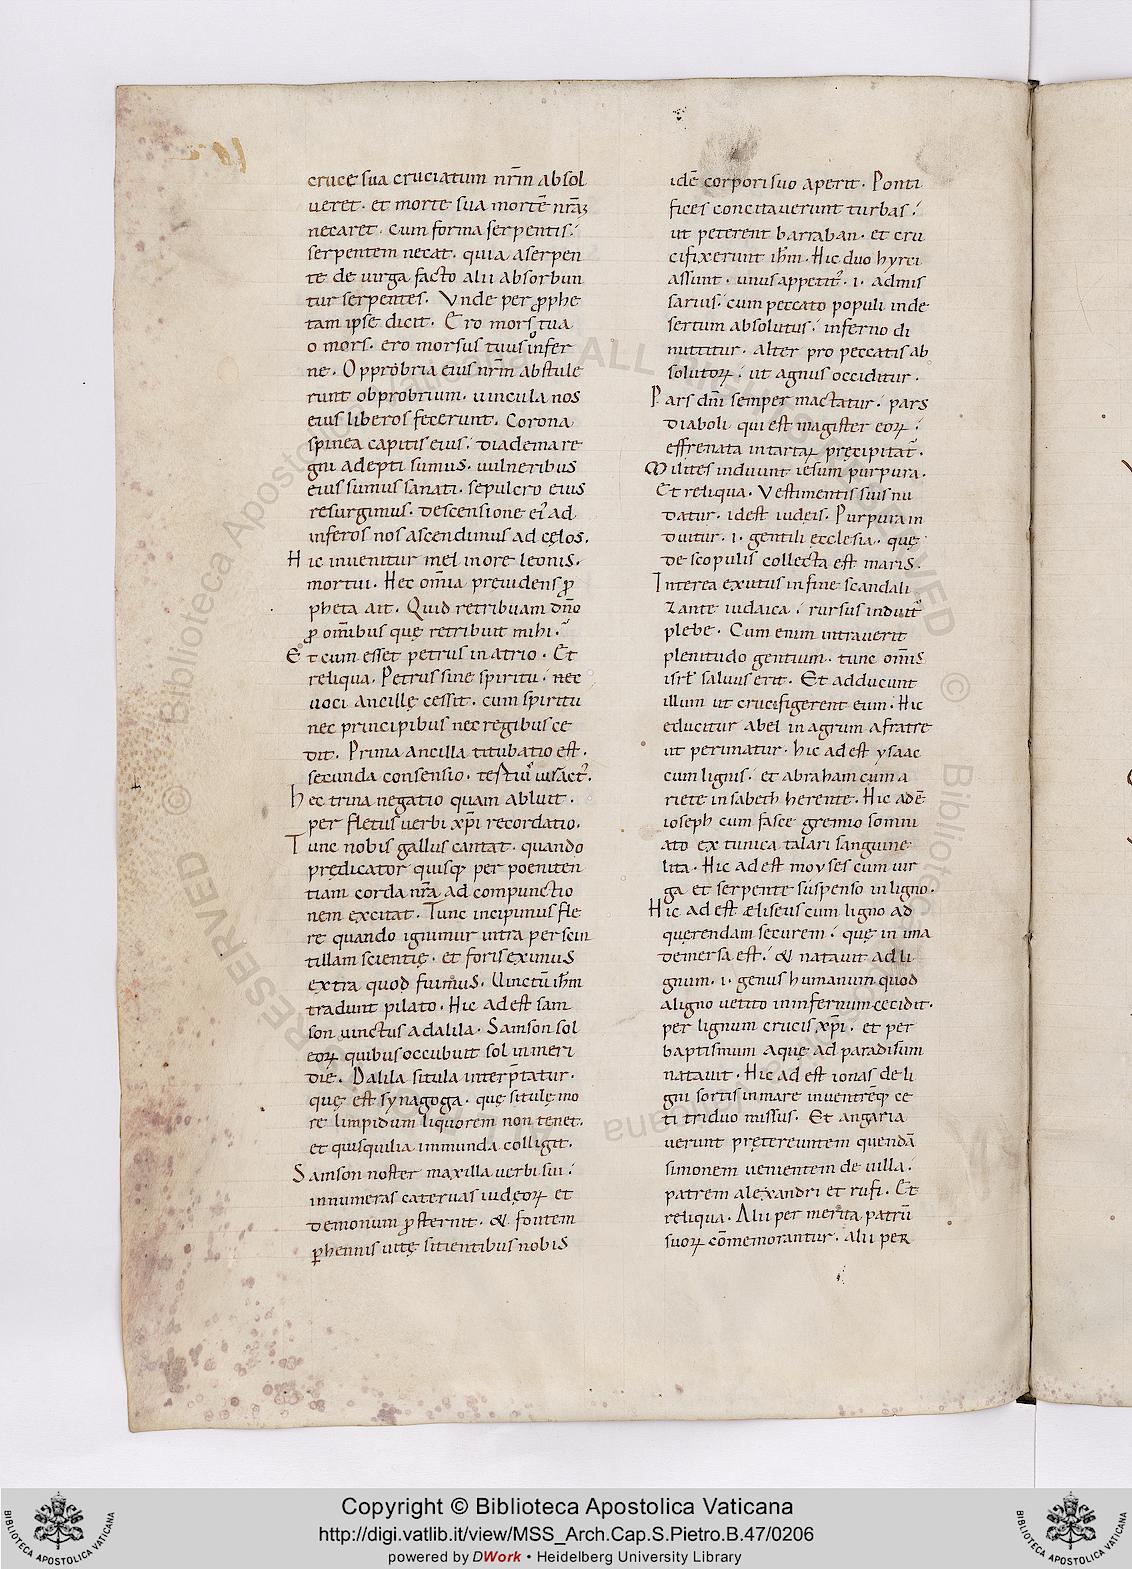 crucę sua cruciatum nr̄m absol
ueret · et morte sua mortē nrāȝ
necaret · cum forma serpentis ·
serpentem necat · quia a serpen
te de uirga facto alii absorbun
tur serpentes · Vnde per ꝓphe
tam ipse dicit · Ero mors tua
o mors · ero morsus tuus infer
ne · Opprobria eius nr̄m abstule
runt obprobrium · uincula nos
eius liberos fecerunt · Corona
spinea capitis eius · diadema re
gni adepti sumus · uulneribus
eius sumus sanati · sepulcro eius
resurgimus · descensione ei᷒ ad
inferos nos ascendimus ad cęlos ·
Hic inuenitur mel in ore leonis ·
mortui · Hec om̄ia preuidens ꝓ
pheta ait · Quid retribuam dn̄o
ꝓ om̄ibus quę retribuit mihi ·
Et cum esset petrus in atrio · Et
reliqua · Petrus sine spiritu · nec
uoci ancillę cessit · cum spiritu
nec principibus nec regibus ce
dit · Prima ancilla titubatio est ·
secunda consensio ·
hec trina negatio quam abluit ·
per fletus uerbi xp̄i recordatio ·
Tunc nobis gallus cantat · quando
prędicator quisqꝫ per poeniten
tiam corda nr̄a ad compunctio
nem excitat · Tunc incipimus fle
re quando ignimur intra per scin
tillam scientię · et foris eximus
extra quod fuimus · Uinctū ih̄m
tradunt pilato · Hic adest sam
son uinctus a dalila · Samson sol
eoꝝ quibus occubuit sol in meri
die · Dalila situla interp̄tatur ·
quę est synagoga · quę situlę mo
re limpidum liquorem non tenet ·
et quisquilia immunda colligit ·
Samson noster maxilla uerbi sui ·
innumeras cateruas iudęoꝝ et
demonum ꝓsternit · & fontem
ꝑhennis uitę sitientibus nobis
idē corpori suo aperit · Ponti
fices concitauerunt turbas ·
ut peterent barraban · et cru
cifixerunt ih̄m · Hic duo hyrci
assunt · unus appetit᷒ · i · admis
sarius · cum peccato populi inde
sertum absolutus · inferno di
mittitur · alter pro peccatis ab
solutoꝝ · ut agnus occiditur ·
Pars dn̄i semper mactatur · pars
diaboli qui est magister eoꝝ ·
effrenata in tartaꝝ pręcipitat̄ ·
Milites induunt iesum purpura ·
Et reliqua · Vestimentis suis nu
datur · id est iudęis · Purpura in
duitur · i · gentili ęcclesia · quę
de scopulis collecta est maris ·
Interea exutus in fine scandali
zante iudaica · rursus induit᷒
plebe · Cum enim intrauerit
plenitudo gentium · tunc om̄is
isrł saluus erit · Et adducunt
illum ut crucifigerent eum · Hic
educitur abel in agrum a fratre
ut perimatur · hic adest ysaac
cum lignis · et abraham cum a
riete in sabech herente · Hic adē
ioseph cum fasce gremio somni
ato ex tunica talari sanguine
lita · Hic adest moyses cum uir
ga et serpente suspenso in ligno ·
Hic adest æliseus cum ligno ad
querendam securem · quę in ima
demersa est · & natauit ad li
gnum · i · genus humanum quod
a ligno uetito in infernum cecidit ·
per lignum crucis xp̄i · et per
baptismum aquę ad paradisum
natauit · Hic adest ionas de li
gni sortis in mare inuentrēqꝫ ce
ti triduo missus · Et angaria
uerunt pręterеuntem quendā
simonem uenientem de uilla ·
patrem alexandri et rufi · Et
reliqua · Alii per merita patrū
suoꝝ cōmemorantur · alii per
Copyright © Biblioteca Apostolica Vaticana
http://digi.vatlib.it/view/MSS_Arch.Cap.S.Pietro.B.47/0206
powered by DWork • Heidelberg University Library